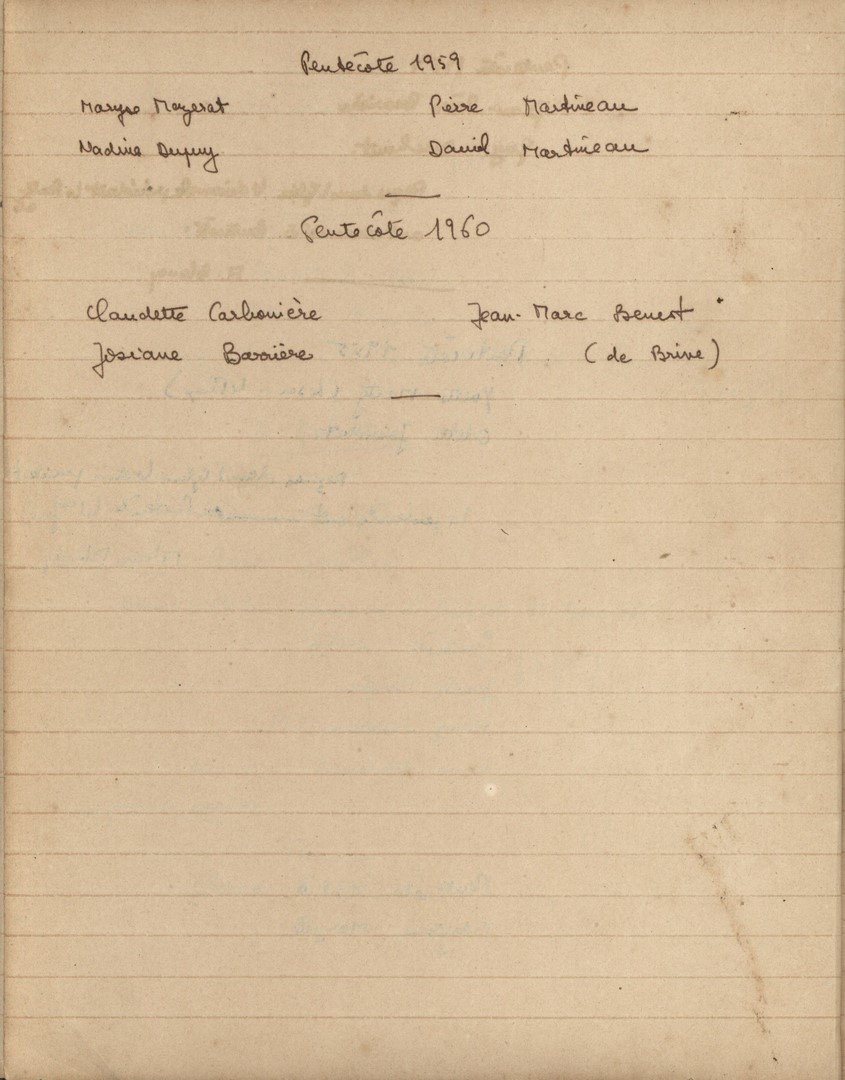 Pentecôte 1959
Maryse Mazerat Pierre Martineau
Nadine Dupuy Daniel Martineau
Pentecôte 1960
Claudette Carbonière Jean-Marc Benest
Josiane Barrière (de Brive)